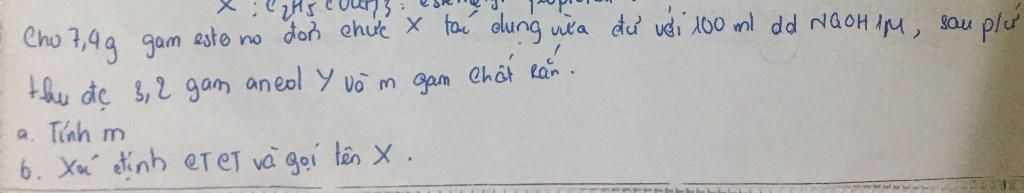 X : C2H5 COOCH3 :
Cho 7,4g gam este no đơn chức X tác dụng vừa đủ với 100 ml dd NaOH 1M, sau p/ứ
thu đc 3,2 gam ancol Y và m gam chất rắn.
a. Tính m
b. Xác định CTCT và gọi tên X.